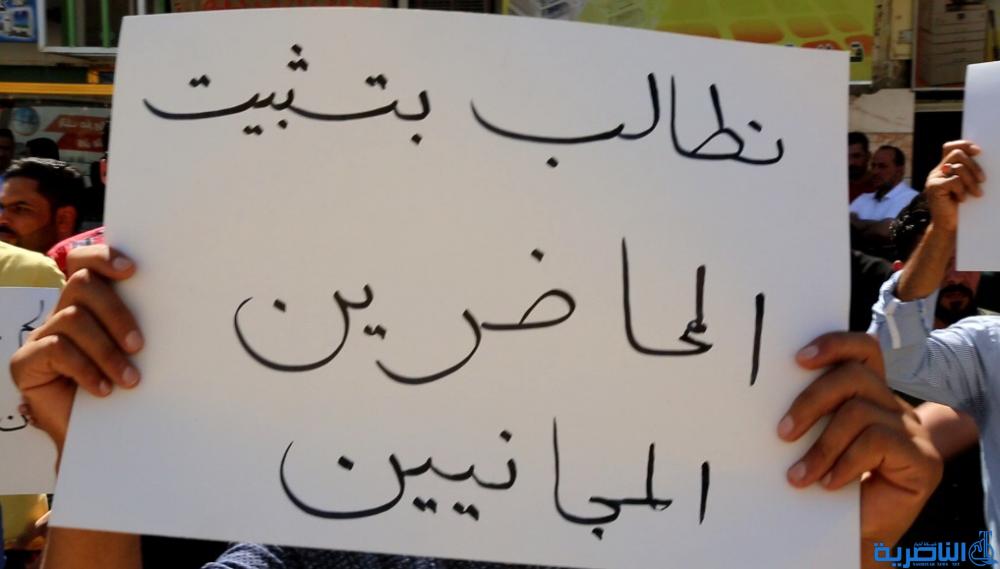 نطالب بتثبيت
المحاضرين
المجانيين
الناصرية